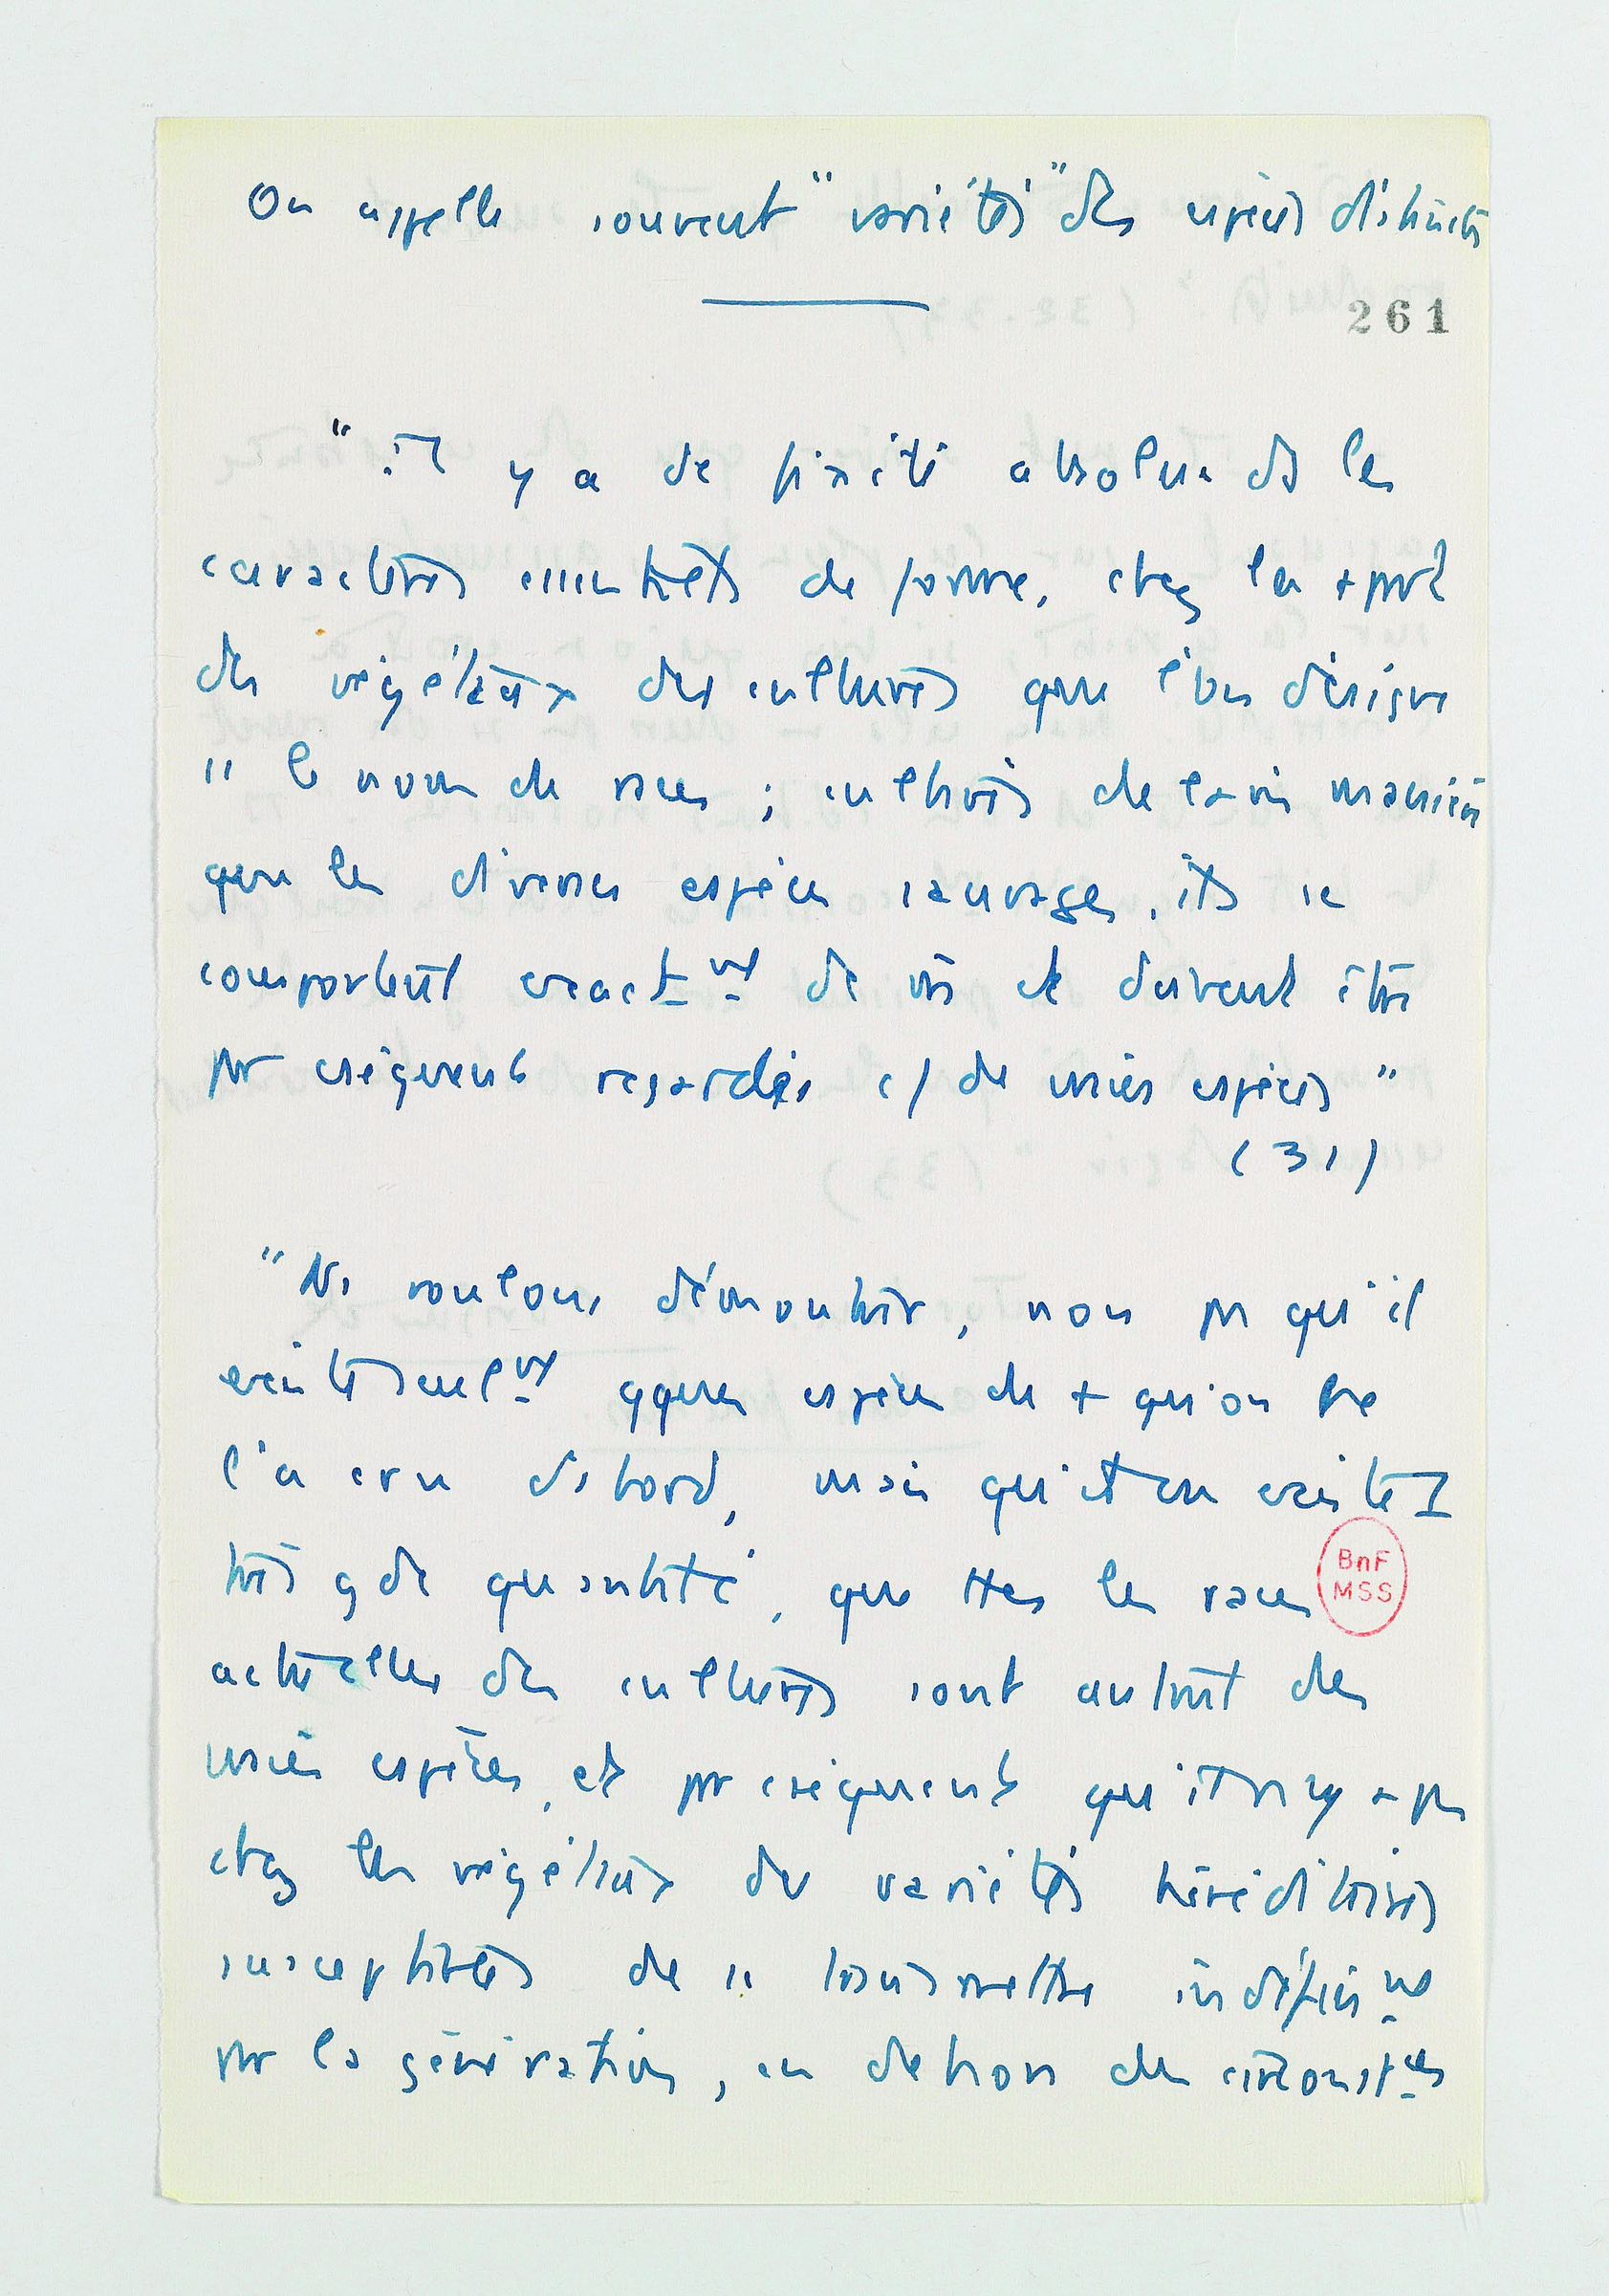 On appelle souvent "variétés" des espèces distinctes
261
"Il y a de fixité absolue ds les
caractères essentiels de forme, chez la + part
des végétaux des cultures que l'on désigne
ss le nom de races ; cultivés de la m manière
que les diverses espèces sauvages, ils se
comportent exactmt de m et doivent être
pr cséquent regardés c/ de vraies espèces"
(31)
"Ns voulons démontrer, non pas qu'il
existe seulmt qques espèces de + qu'on ne
l'a cru d'abord, mais qu'il en existe I
très gde quantité, que ttes les races
BnF
MSS
actuelles des cultures sont autant de
vraies espèces, et pr cséquent qu'il n'y a pas
chez les végétaux de variétés héréditaires
susceptibles de se transmettre indéfinimt
par la génération, en dehors des circonstces